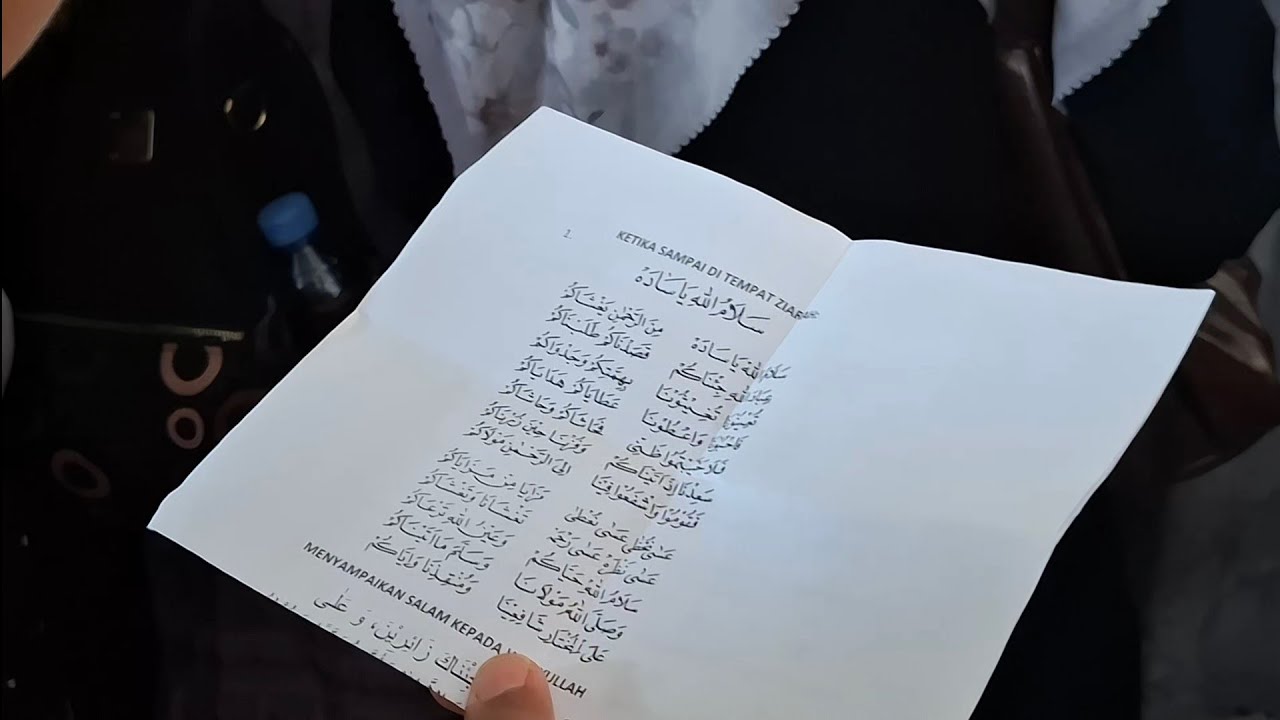 1. KETIKA SAMPAI DI TEMPAT ZIARAH
سَلَامُ اللهِ يَاسَادَةْ
سَلَامُ اللهِ يَاسَادَةْ مِنَ الرَّحْمٰنِ يَغْشَاكُمْ
عِبَادَ اللهِ جِئْنَاكُمْ قَصَدْنَاكُمْ طَلَبْنَاكُمْ
تُعِيْنُوْنَا تُغِيْثُوْنَا بِهِمَّتِكُمْ وَجَدْوَاكُمْ
فَاحْبُوْنَا وَاعْطُوْنَا عَطَايَاكُمْ هَدَايَاكُمْ
فَلَا خَيَّبْتُمُوا ظَنِّي فَحَاشَاكُمْ وَحَاشَاكُمْ
سَعِدْنَا إِذْ أَتَيْنَاكُمْ وَفُزْنَا حِيْنَ زُرْنَاكُمْ
فَقُوْمُوْا وَاشْفَعُوْا فِيْنَا إِلَى الرَّحْمٰنِ مَوْلَاكُمْ
عَسَى نُحْظَى عَسَى نُعْطَى مَزَايَا مِنْ مَزَايَاكُمْ
عَسَى نَظْرَةْ عَسَى رَحْمَةْ تَغْشَانَا وَتَغْشَاكُمْ
سَلَامُ اللهِ حَيَّاكُمْ وَعَيْنُ اللهِ تَرْعَاكُمْ
وَصَلَّى اللهُ مَوْلَانَا وَسَلَّمَ مَا أَتَيْنَاكُمْ
عَلَى الْمُخْتَارِ شَافِعِنَا وَمُنْقِذِنَا وَإِيَّاكُمْ
MENYAMPAIKAN SALAM KEPADA
زَائِرِيْنَ، وَ عَلَى